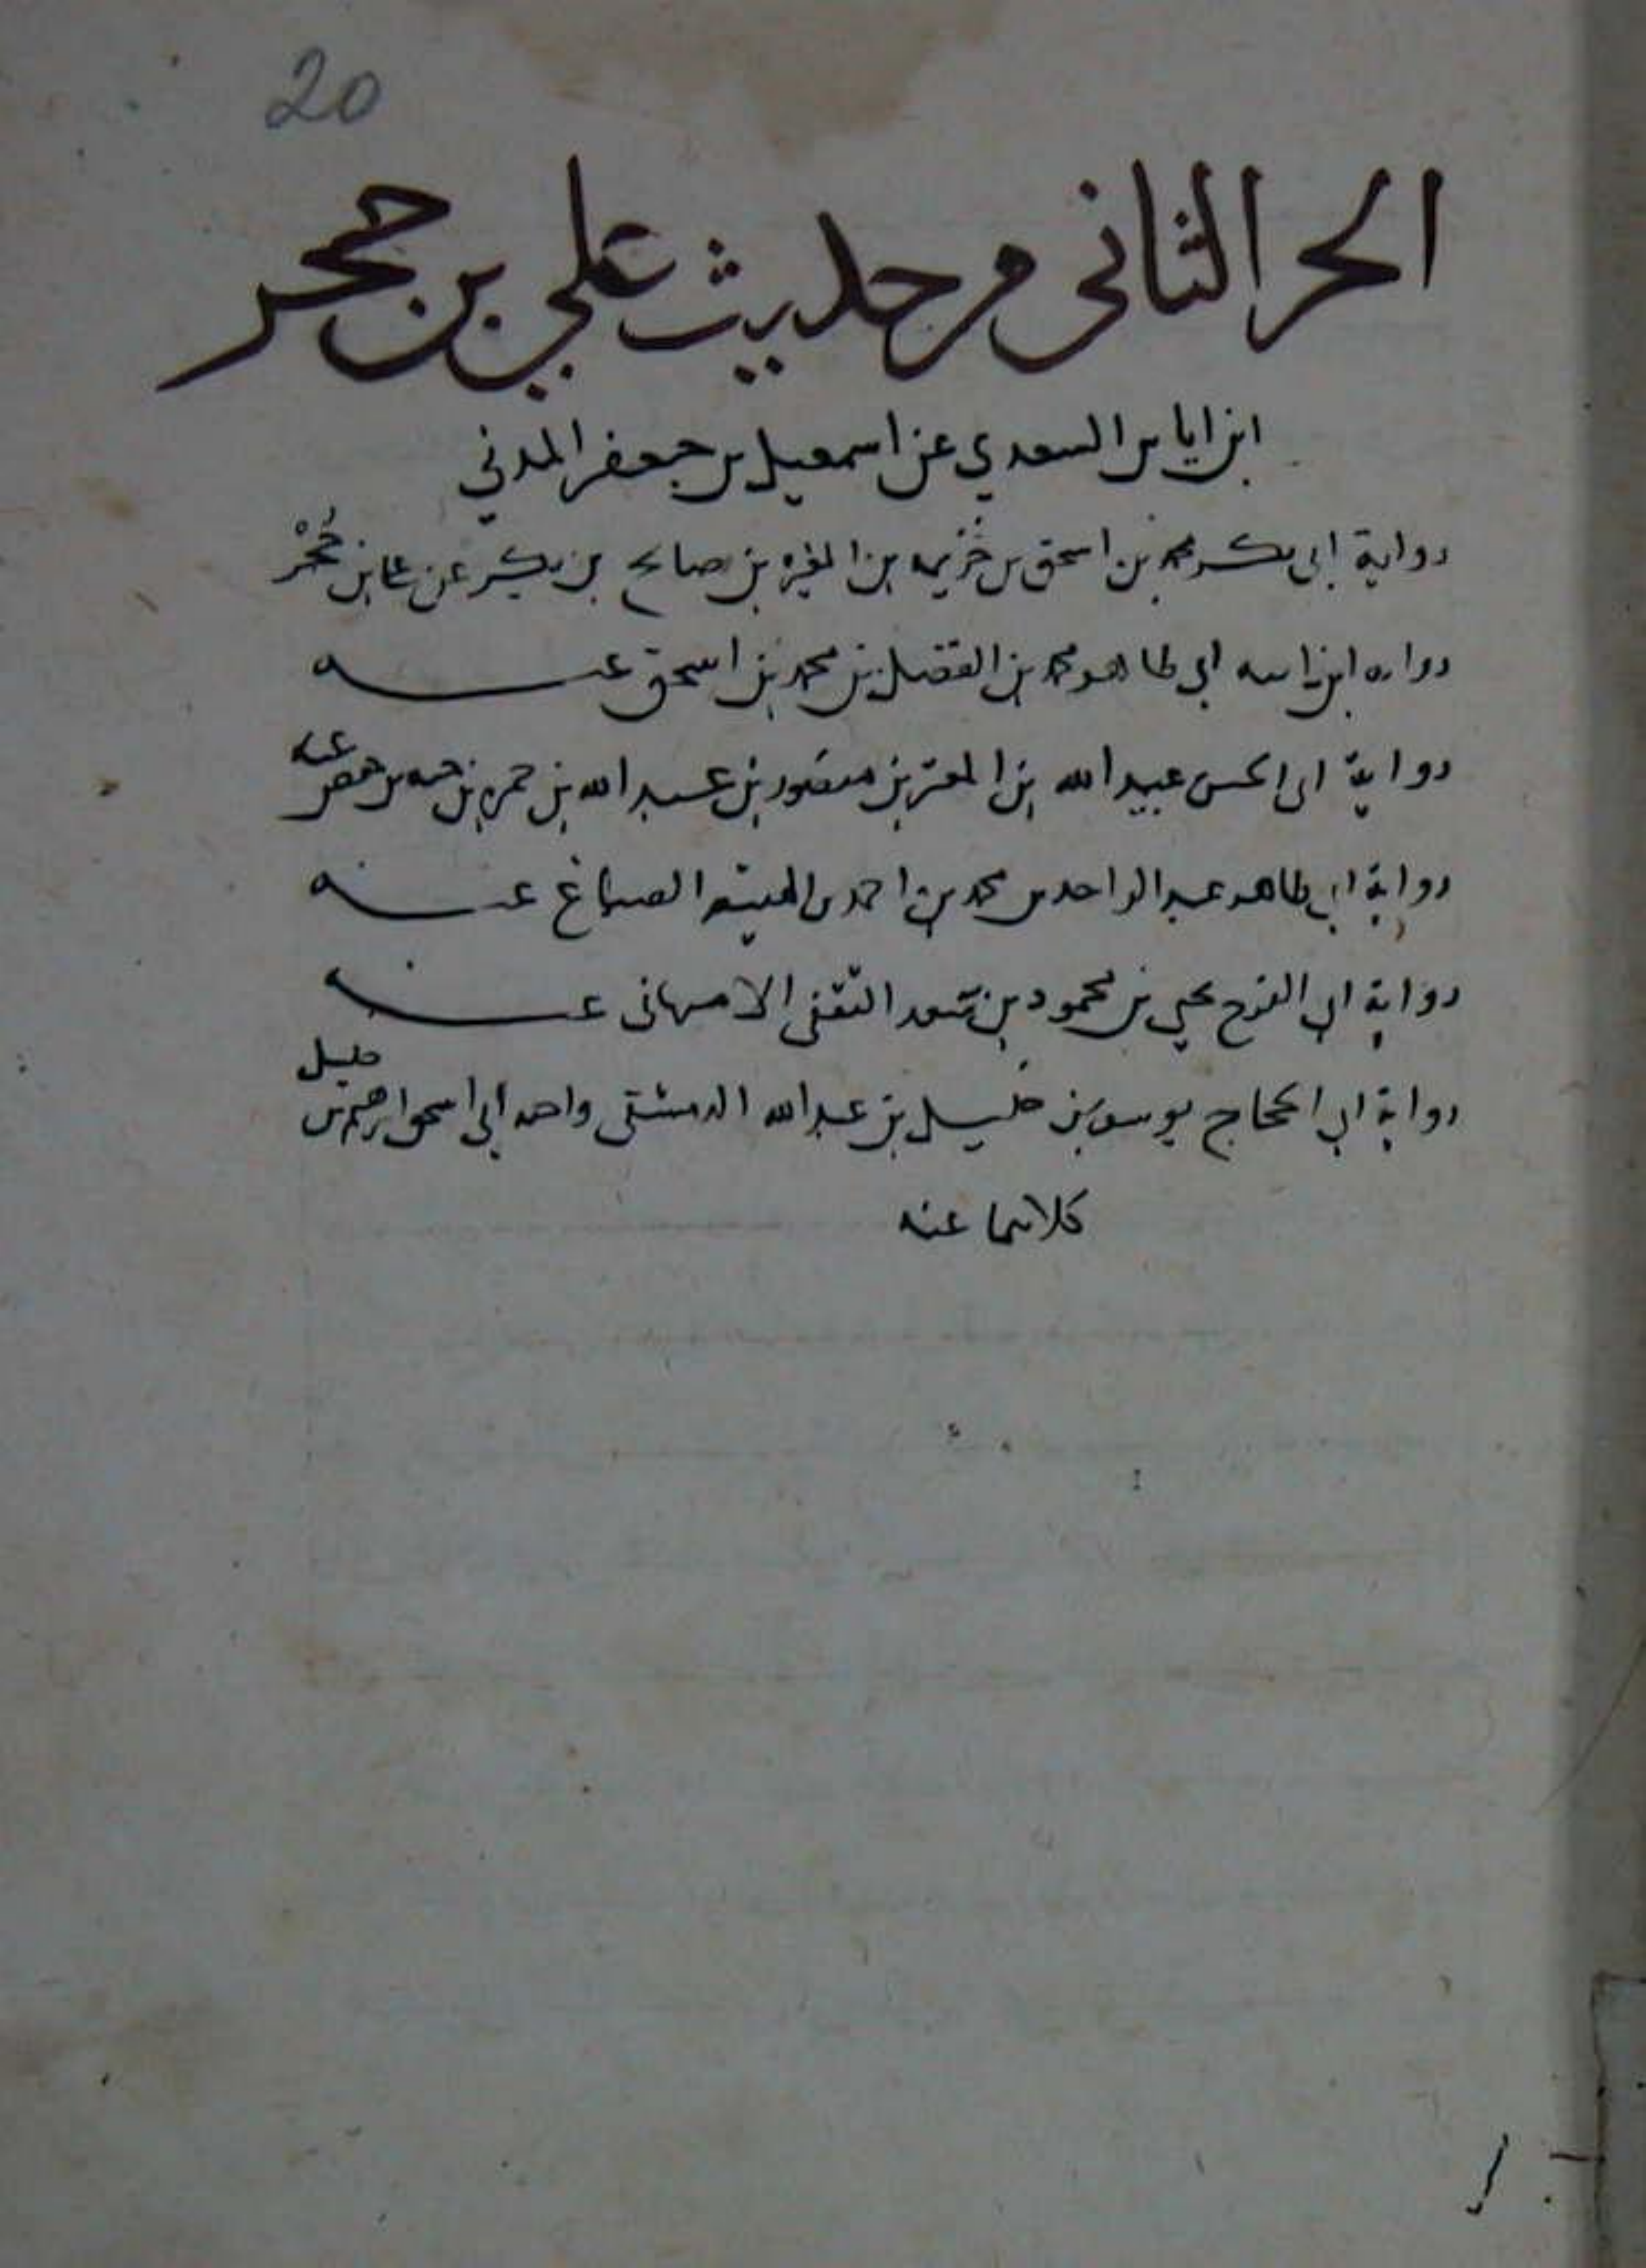 20
الجزء الثاني من حديث علي بن حجر
ابن اياس السعدي عن اسمعيل بن جعفر المدني
رواية ابي بكر محمد بن اسحق بن خُزيمه بن المغيره بن صالح بن بكر عن علي بن حُجْر
رواية ابن ابنه ابي طاهر محمد بن الفضل بن محمد بن اسحق عنه
رواية ابي الحسن عبيد الله بن المعتز بن منصور بن عبد الله بن حمزه بن عنه
رواية ابي طاهر عبد الواحد بن محمد بن احمد بن الهيثم الصباغ عنه
رواية ابي الفرج يحيى بن محمود بن سعد الثقفي الاصبهاني عنه
رواية ابي الحجاج يوسف بن خليل بن عبد الله الدمشقي واخيه ابي اسحق ابرهيم بن خليل
كلاهما عنه